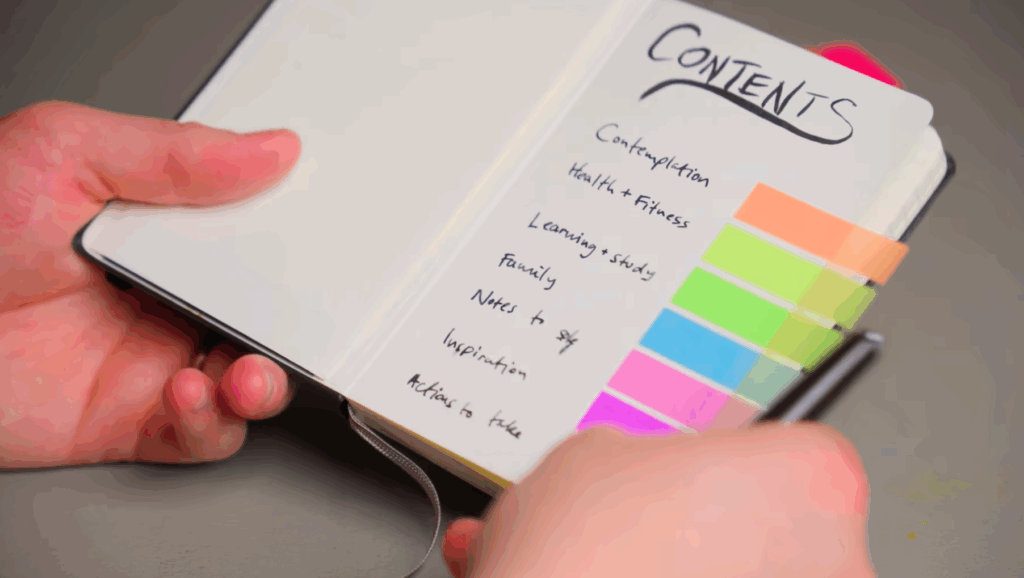 CONTENTS
Contemplation
Health + Fitness
Learning + study
Family
Notes to
Inspiration
Actions to take